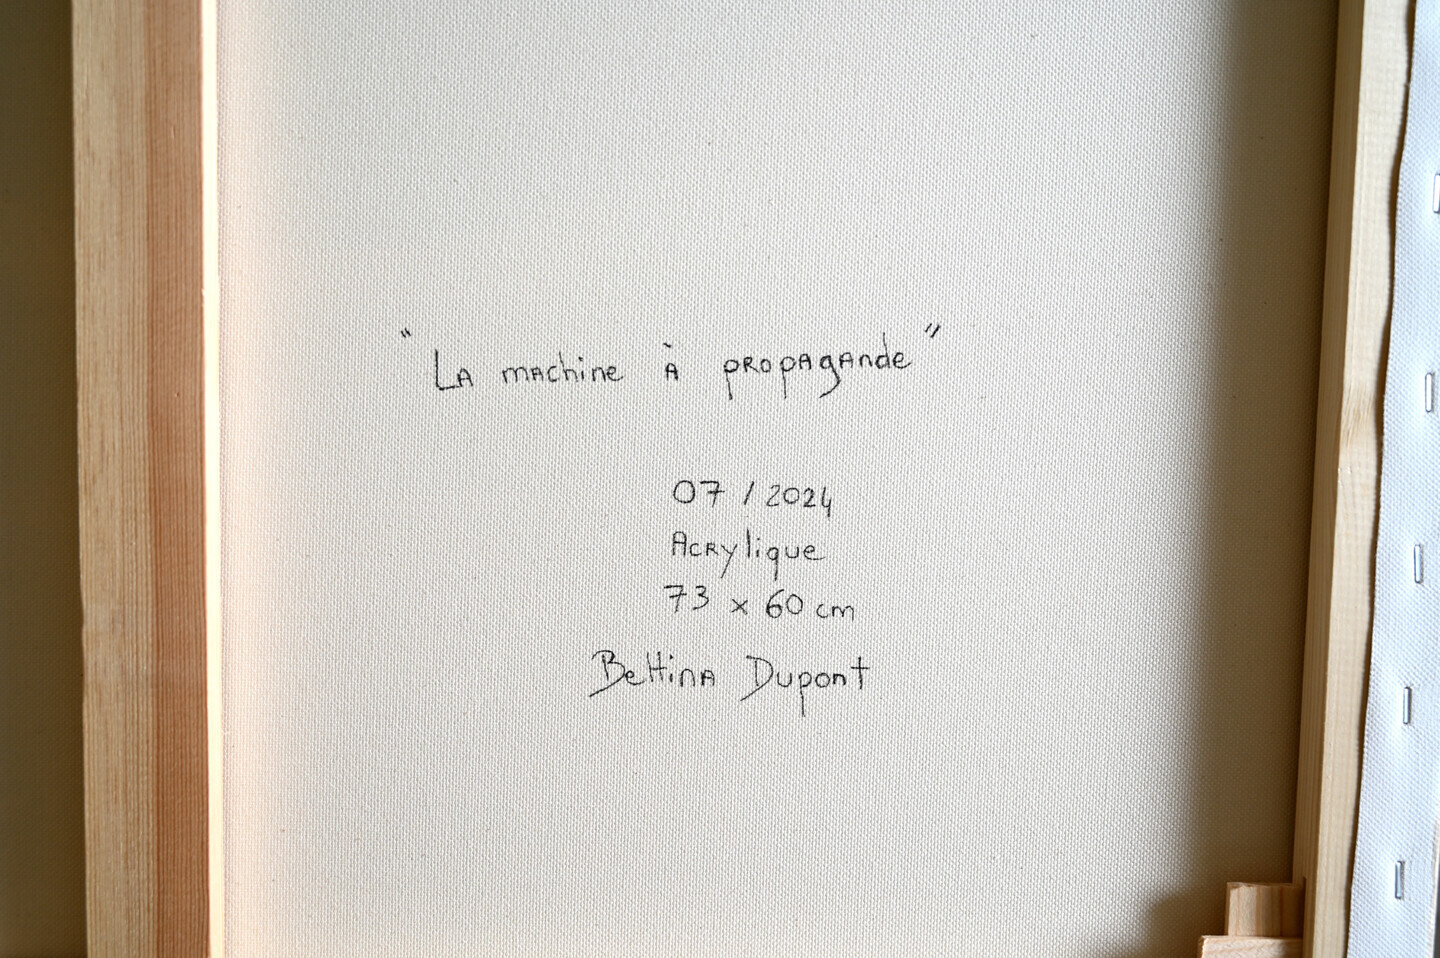 "La machine à propagande"
07 / 2024
Acrylique
73 x 60 cm
Bettina Dupont